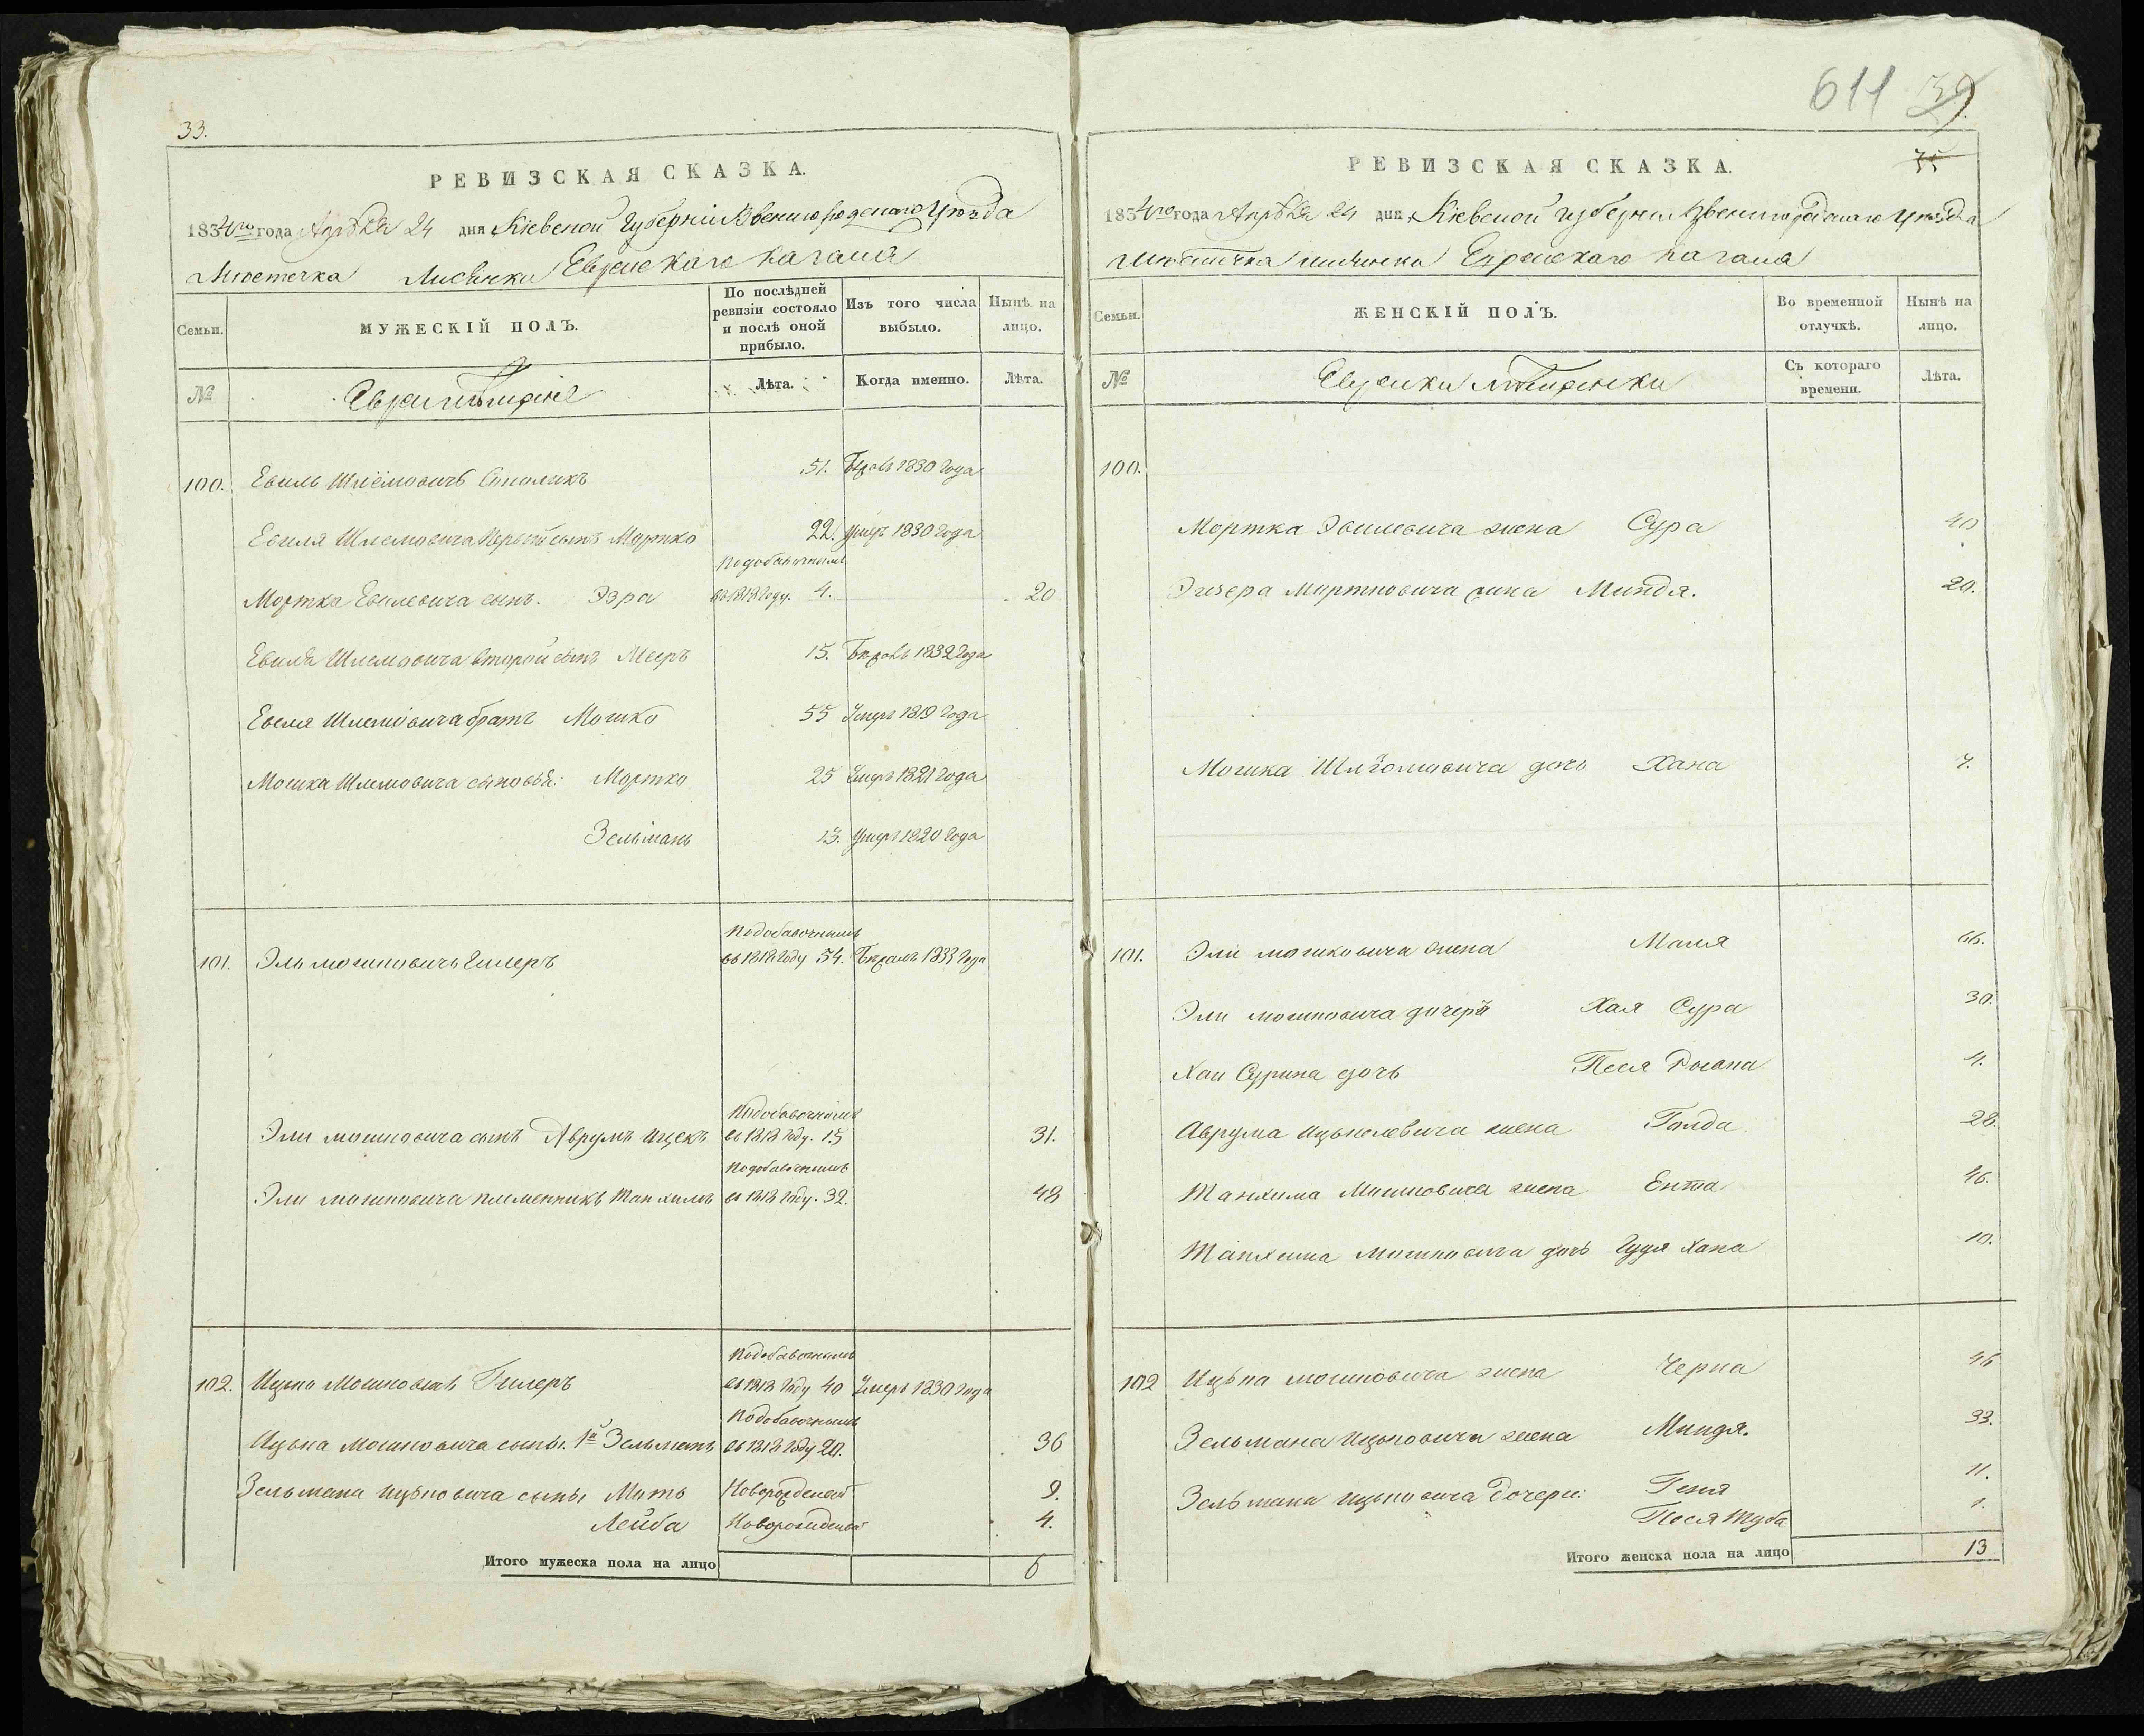 33.
РЕВИЗСКАЯ СКАЗКА.
1834го года Апрѣля 24 дня Кіевской Губерніи Звенигородскаго Уѣзда
Мѣстечка Лисянки Еврейскаго Кагала
Семьи.
МУЖЕСКІЙ ПОЛЪ.
По послѣдней ревизіи состояло и послѣ оной прибыло.
Изъ того числа выбыло.
Нынѣ на лицо.
№
Евреи мѣщане
Лѣта.
Когда именно.
Лѣта.
100. Евиль Шлёмовичъ 51. 1830 года
Евиля Шлемовича первый сынъ Мортко 22. умеръ 1830 года
Подобавочнымъ
Мортка Евилевича сынъ. Эзра въ 1818 году. 4. 20
Евиля Шлемовича второй сынъ Мееръ 15. 1832 года
Евеля Шлемовича братъ Мошко 55 Умеръ 1819 года
Мошка Шлемовича сыновья: Мортко 25 Умеръ 1821 года
Зельманъ 13. Умеръ 1820 года
Подобавочнымъ
101. Эль Мошковичъ Гилеръ въ 1818 году 54. 1833 года
Подобавочнымъ
Эли Мошковича сынъ Аврумъ Ицекъ въ 1818 году. 15 31.
Подобавочнымъ
Эли Мошковича племенникъ Танхимъ въ 1818 году. 32. 48
Подобавочнымъ
102. Ицко Мошковичъ Гилеръ въ 1818 году 40 Умеръ 1830 года
Подобавочнымъ
Ицька Мошковича сыны. 1й Зельманъ въ 1818 году 20. 36
Зельмана Ицьковича сыны Мать Новорожденный 9.
Лейба Новорожденный 4.
Итого мужеска пола на лицо 6
611 39.
75
РЕВИЗСКАЯ СКАЗКА.
1834го года Апрѣля 24 дня Кіевской Губерніи Звенигородскаго Уѣзда
Мѣстечка Лисянки Еврейскаго Кагала
Семьи.
ЖЕНСКІЙ ПОЛЪ.
Во временной отлучкѣ.
Нынѣ на лицо.
№
Еврейки мѣщанки
Съ котораго времени.
Лѣта.
100.
Мортка Эвилевича жена Сура 40
Мортковича жена Миндя. 20.
Мошка Шлёомовича дочь Хана 7.
101. Эли Мошковича жена Маля 66.
Эли Мошковича дочеръ Хая Сура 30.
Хаи Сурина дочь Песя 4.
Аврума Ицькелевича жена Голда 28.
Танхима Мошковича жена Ента 46.
Танхима Мошковича дочь Гудя Хана 10.
102 Ицька Мошковича жена Черна 46
Зельмана Ицьковича жена Миндя. 33.
Зельмана Ицьковича дочери: Геня 11.
Песя Туба 1.
Итого женска пола на лицо 13